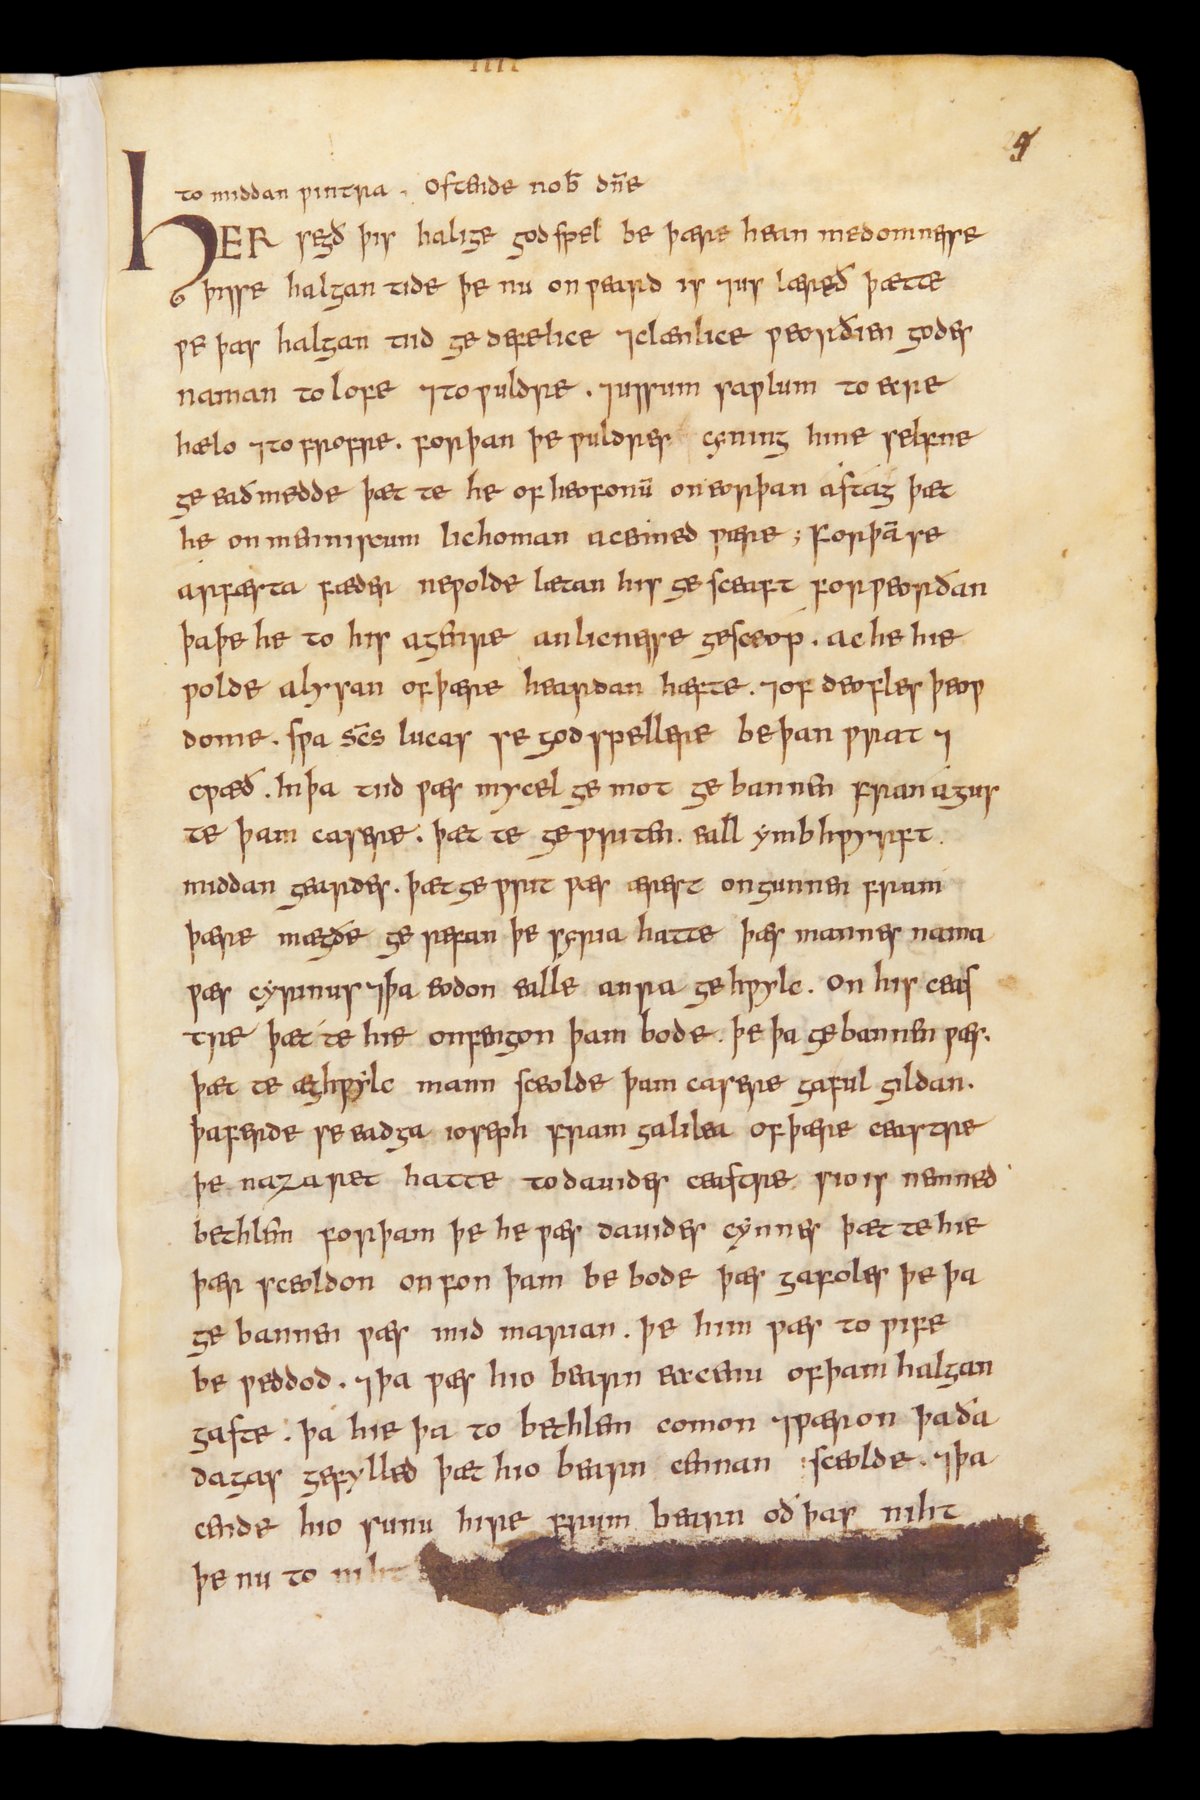 IIII
9
to middan ƿintra . Ostende nob̄ dn̄e
HER segð þis halige godspel be þære hean medomnesse
þisse halgan tide þe nu onƿeard is ⁊us læreð þætte
ƿe þas halgan tiid ge defelice ⁊clænlice ƿeorðien godes
naman to lofe ⁊to ƿuldre . ⁊ussum saƿlum to ecre
hælo ⁊to frofre . forþan þe ƿuldres cyning hine selfne
ge eaðmedde þæt te he of heofonū on eorþan astág þæt
he on menniscum lichoman acenned ƿære ; Forþā se
árfæsta fæder neƿolde lætan his ge sceaft forƿeorðan
þaþe he to his agenre anlicnesse gesceóp . ac he hie
ƿolde alysan of þære heardan hæfte . ⁊of deofles þeoƿ
dome . sƿa sc̄s lucas se godspellere be þan ƿrat ⁊
cƿæð . In þa tiid ƿæs mycel ge mot ge bannen fran águs
te þam casere . þæt te ge ƿriten . eall ymbhƿyrft .
middan geardes . þæt ge ƿrit ƿæs ærest ongunnen fram
þære mægðe ge refan þe syria hatte þæs mannes nama
ƿæs cyrinus ⁊þa eodon ealle anra ge hƿylc . On his ceas
tre þæt te hie onfengon þam bode . þe þa ge bannen ƿæs .
þæt te æghƿylc mann sceolde þam casere gaful gildan .
þa ferde se eadga ioseph fram galilea of þære ceastre
þe nazaret hatte to dauides ceastre sio is nenned
bethlem forþam þe he ƿæs dauides cynnes þæt te hie
þær sceoldon onfon þam be bode þæs gafoles þe þa
ge bannen ƿæs mid marian . þe him ƿæs to ƿife
be ƿeddod . ⁊þa ƿæs hio bearn eacenu of þam halgan
gaste . þa hie þa to bethlem comon ⁊ƿæron þa ða
dagas gefylled þæt hio bearn cennan sceolde . ⁊þa
cende hio sunu hire frum bearn oð þas niht
þe nu to niht